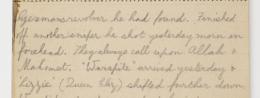 gersman's revolver he had found. Finished
off another sniper he shot yesterday morn in
forehead. They always call upon Allah &
Mahomet. "Warspite" arrived yesterday &
'Lizzie' (Queen Eliz) shifted further down.